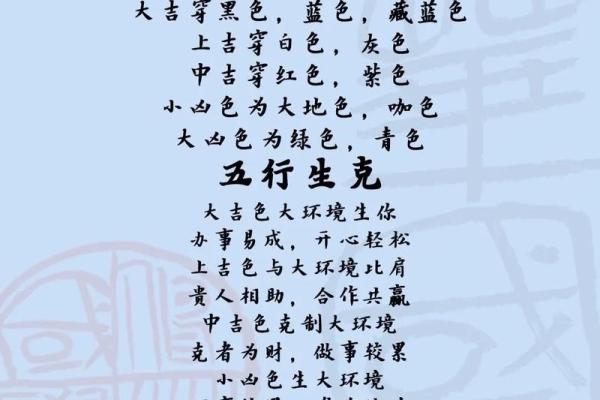 大吉穿黑色，蓝色，藏蓝色
上吉穿白色，灰色
中吉穿红色，紫色
小凶色为大地色，咖色
大凶色为绿色，青色
五行生克
大吉色大环境生你
办事易成，开心轻松
上吉色与大环境比肩
貴人相助，合作共赢
中吉色克制大环境
克者为财，做事较累
小凶色生大环境